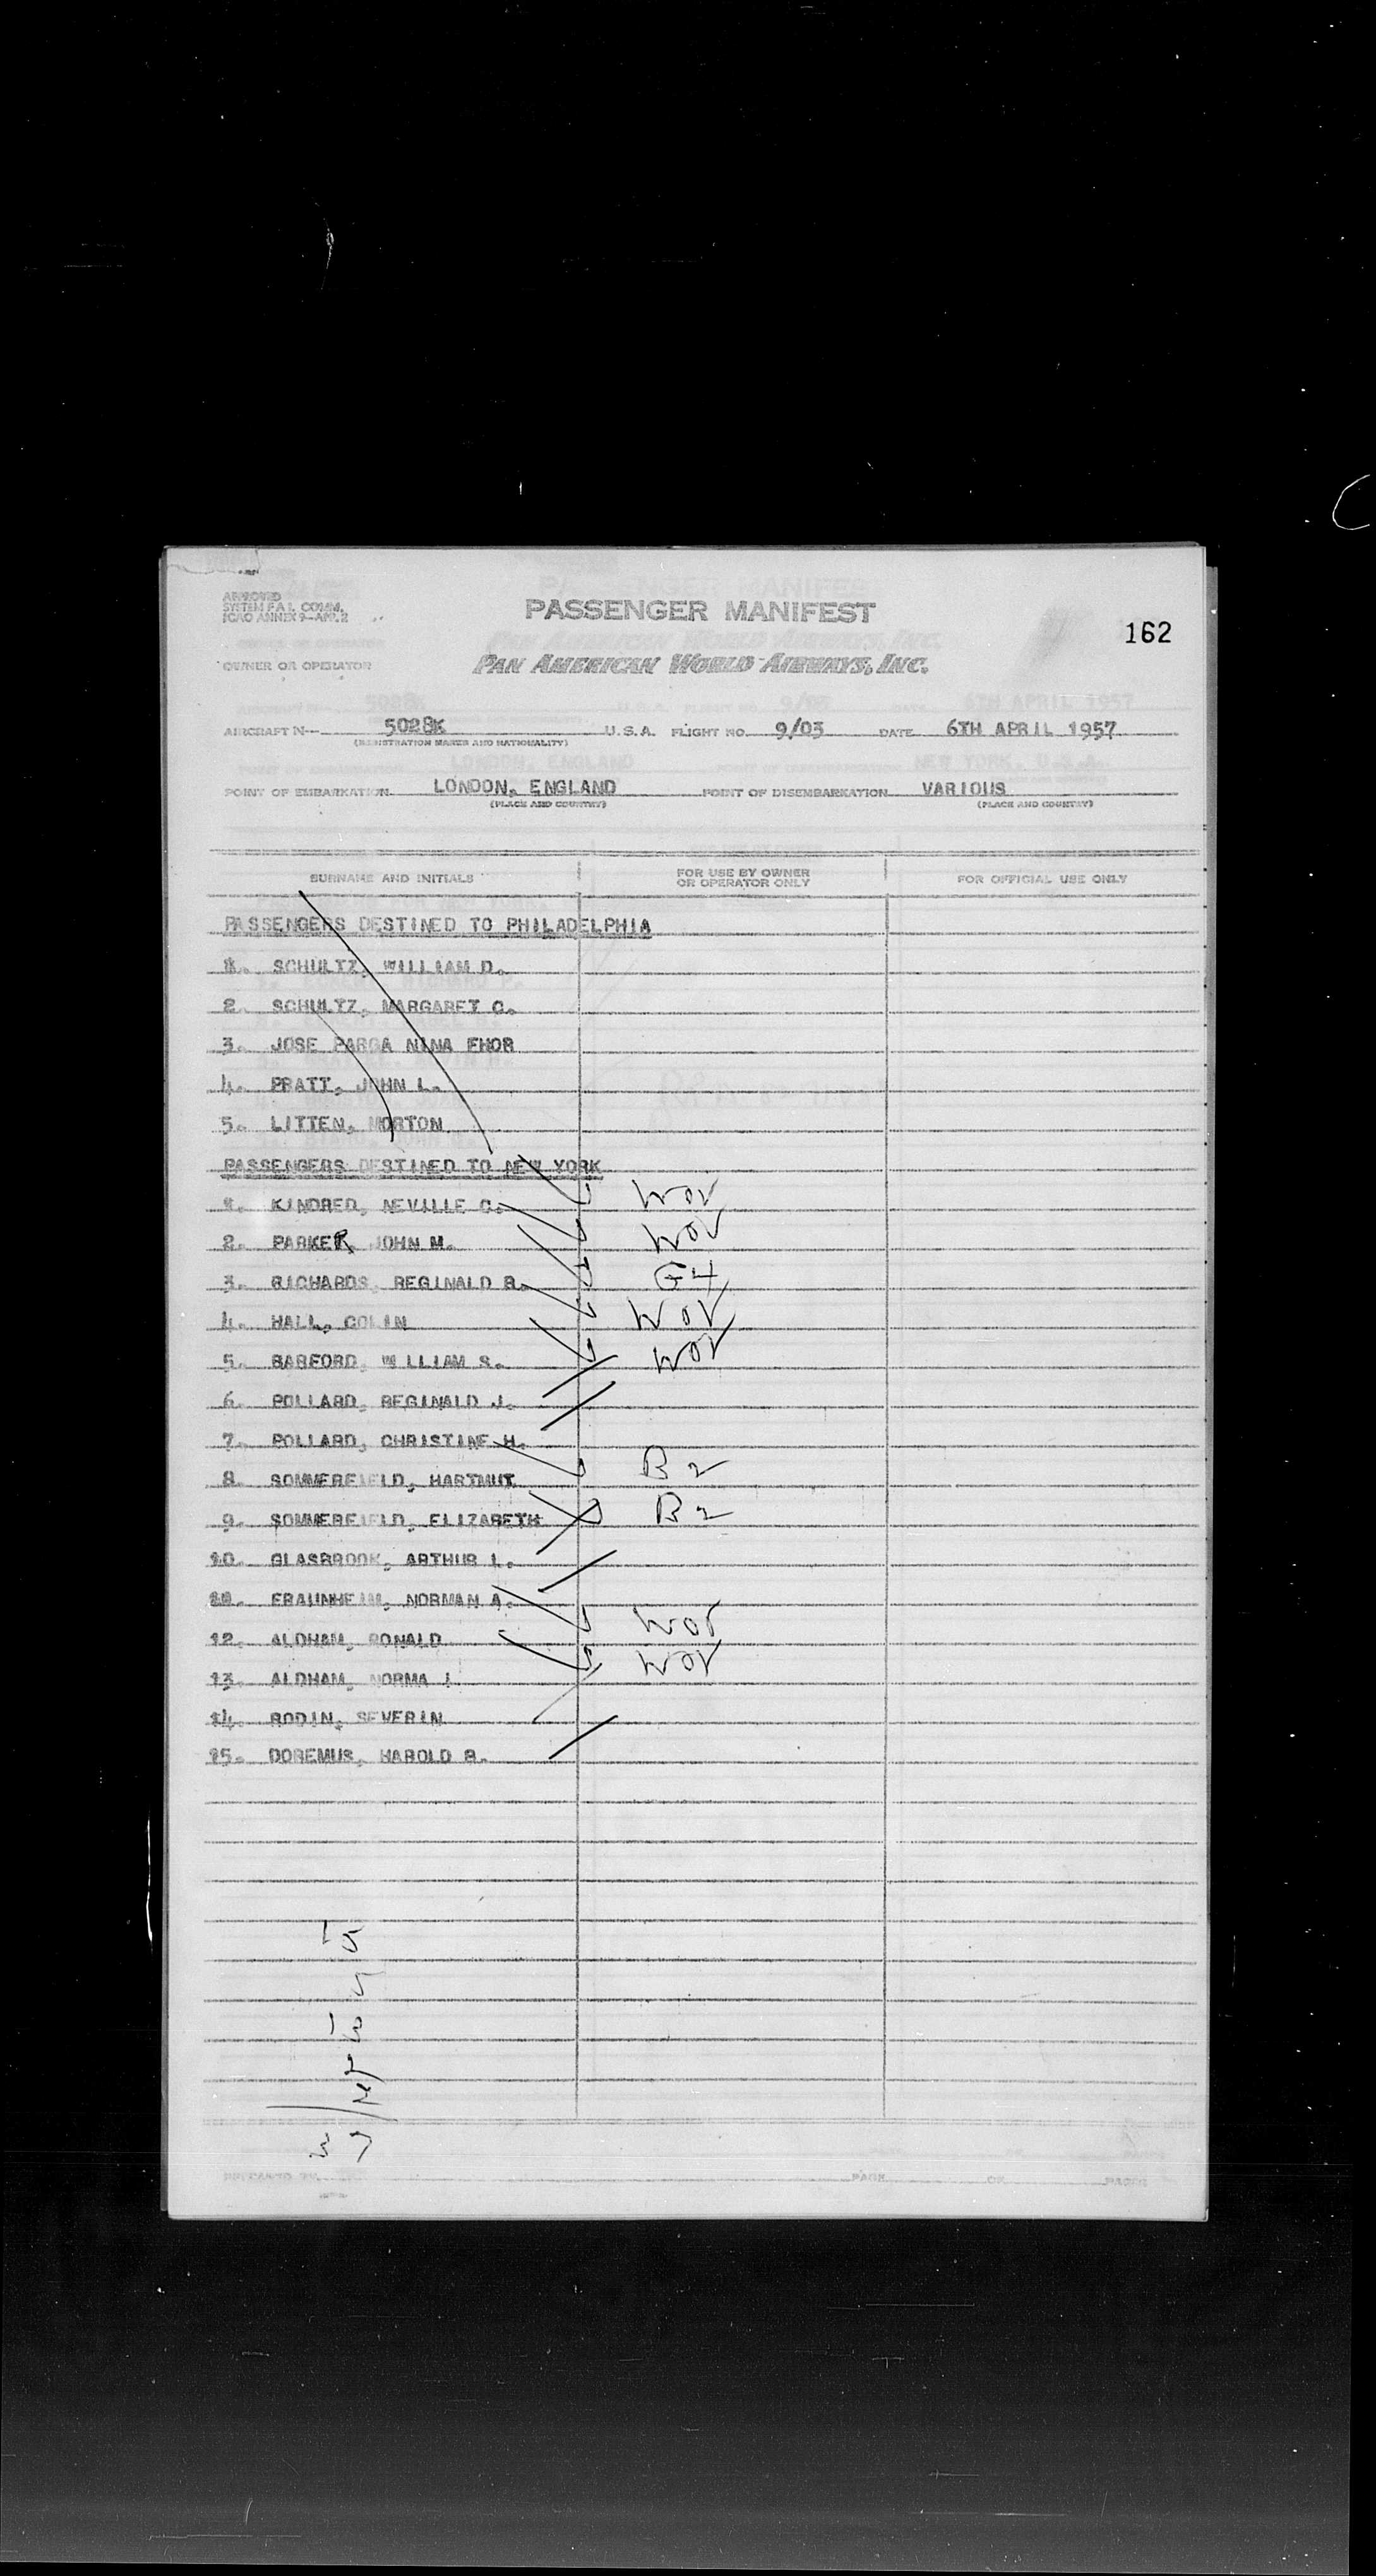 APPROVED
SYSTEM F.A.L. COMM.
ICAO ANNEX 9-APP. 2
PASSENGER MANIFEST
162
OWNER OR OPERATOR
PAN AMERICAN WORLD AIRWAYS, INC.
AIRCRAFT N 5028K U.S.A. FLIGHT NO. 9/03 DATE 6TH APRIL 1957
(REGISTRATION MARKS AND NATIONALITY)
POINT OF EMBARKATION LONDON, ENGLAND POINT OF DISEMBARKATION VARIOUS
(PLACE AND COUNTRY) (PLACE AND COUNTRY)
SURNAME AND INITIALS FOR USE BY OWNER OR OPERATOR ONLY FOR OFFICIAL USE ONLY
PASSENGERS DESTINED TO PHILADELPHIA
1. SCHULTZ, WILLIAM D.
2. SCHULTZ, MARGARET C.
3. JOSE PARGA NINA EHOR
4. PRATT, JOHN L.
5. LITTEN, MORTON
PASSENGERS DESTINED TO NEW YORK
1. KINDRED, NEVILLE C. WOV
2. PARKER, JOHN M. WOV
3. RICHARDS, REGINALD B. G4
4. HALL, COLIN WOV
5. BARFORD, WILLIAM S. WOV
6. POLLARD, REGINALD J.
7. POLLARD, CHRISTINE H.
8. SOMMERFIELD, HARTMUT B2
9. SOMMERFIELD, ELIZABETH B2
10. GLASBROOK, ARTHUR L.
11. FRAUNHEIM, NORMAN A.
12. ALDHAM, RONALD WOV
13. ALDHAM, NORMA J. WOV
14. RODIN, SEVERIN
15. DOREMUS, HAROLD B.
PAGE OF PAGES